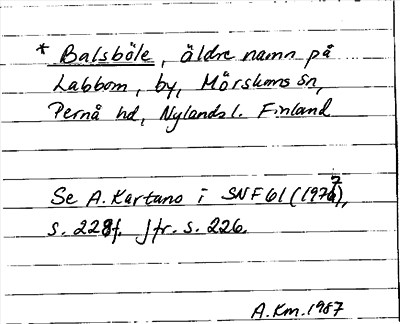 * Balsböle, äldre namn på
Labbom, by, Mörskoms sn,
Pernå hd, Nylands l. Finland
Se A. Kartano i SNF 61 (1977),
s. 228f. Jfr. s. 226.
A.Km. 1987